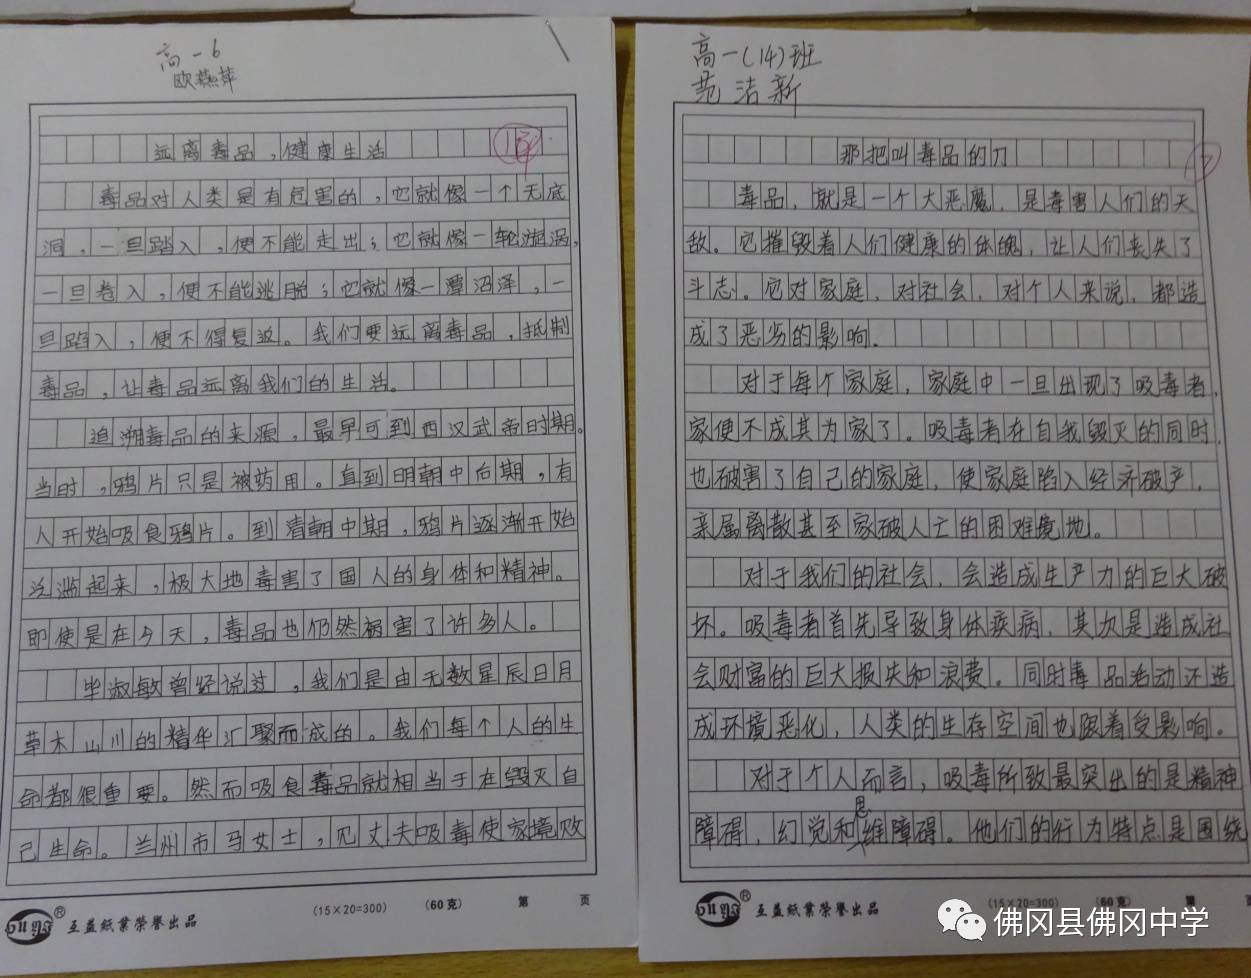 高一6
欧燕萍
远离毒品,健康生活
毒品对人类是有危害的,它就像一个无底
洞,一旦踏入,便不能走出;它就像一轮漩涡,
一旦卷入,便不能逃脱;它就像一潭沼泽,一
旦踏入,便不得复返。我们要远离毒品,抵制
毒品,让毒品远离我们的生活。
追溯毒品的来源,最早可到西汉武帝时期。
当时,鸦片只是被药用。直到明朝中后期,有
人开始吸食鸦片。到清朝中期,鸦片逐渐开始
泛滥起来,极大地毒害了国人的身体和精神。
即使是在今天,毒品也仍然祸害了许多人。
毕淑敏曾经说过,我们是由无数星辰日月
草木山川的精华汇聚而成的。我们每个人的生
命都很重要。然而吸食毒品就相当于在毁灭自
己生命。兰州市马女士,见丈夫吸毒使家境败
互益紙業榮譽出品
(15×20=300)
(60克)
第 页
高一(14)班
范洁新
那把叫毒品的刀
毒品,就是一个大恶魔,是毒害人们的天
敌。它摧毁着人们健康的体魄,让人们丧失了
斗志。它对家庭,对社会,对个人来说,都造
成了恶劣的影响.
对于每个家庭,家庭中一旦出现了吸毒者,
家便不成其为家了。吸毒者在自我毁灭的同时,
也破害了自己的家庭,使家庭陷入经济破产,
亲属离散甚至家破人亡的困难境地。
对于我们的社会,会造成生产力的巨大破
坏。吸毒者首先导致身体疾病,其次是造成社
会财富的巨大损失和浪费。同时毒品活动还造
成环境恶化,人类的生存空间也跟着受影响。
对于个人而言,吸毒所致最突出的是精神
障碍,幻觉和思维障碍。他们的行为特点是围绕
互益紙業榮譽出品
(15×20=300)
(60克)
第
佛冈县佛冈中学